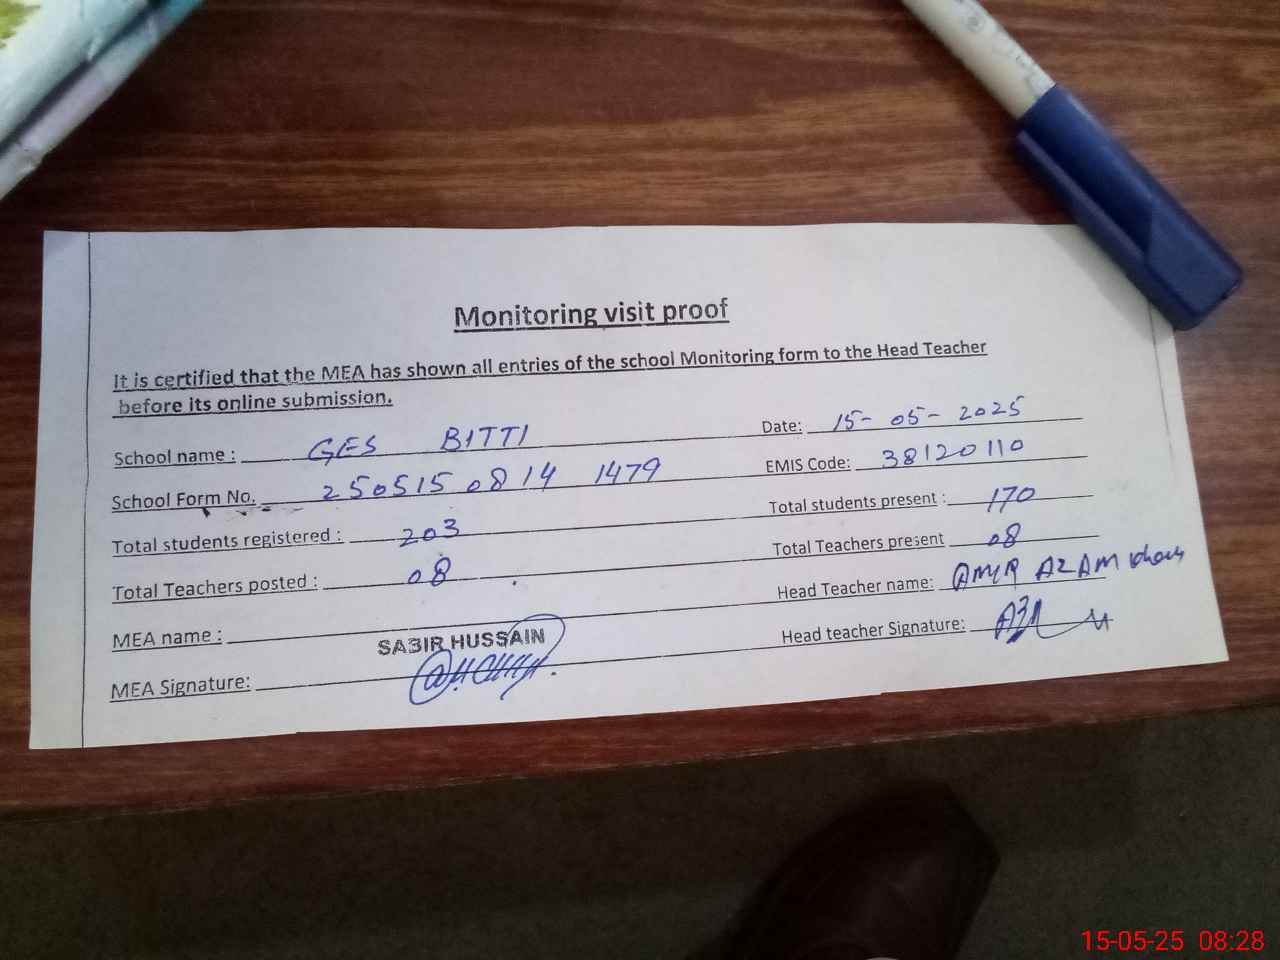 Monitoring visit proof
It is certified that the MEA has shown all entries of the school Monitoring form to the Head Teacher
before its online submission.
School name : GES BITTI Date: 15-05-2025
School Form No. 250515 0814 1479 EMIS Code: 38120110
Total students registered : 203 Total students present : 170
Total Teachers posted : 08 Total Teachers present 08
MEA name : SABIR HUSSAIN Head Teacher name: AMIR AZAM
MEA Signature: Head teacher Signature:
15-05-25 08:28